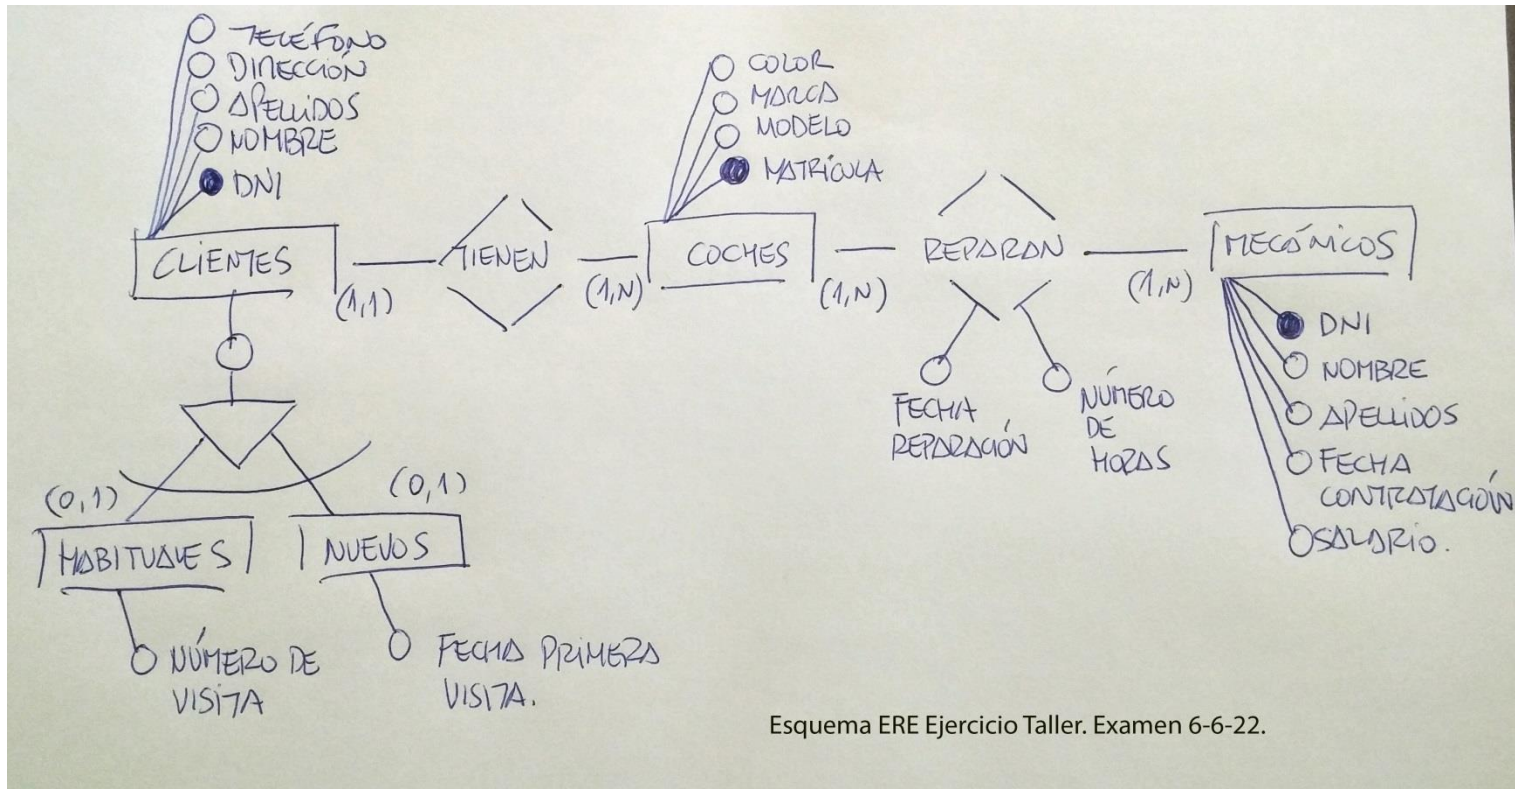 TELÉFONO
DIRECCIÓN
APELLIDOS
NOMBRE
DNI
COLOR
MARCA
MODELO
MATRÍCULA
CLIENTES
(1,1)
TIENEN
(1,N)
COCHES
(1,N)
REPARAN
(1,N)
MECÁNICOS
DNI
NOMBRE
APELLIDOS
FECHA
CONTRATACIÓN
SALARIO.
FECHA
REPARACIÓN
NÚMERO
DE
HORAS
(0,1)
(0,1)
HABITUALES
NUEVOS
NÚMERO DE
VISITA
FECHA PRIMERA
VISITA.
Esquema ERE Ejercicio Taller. Examen 6-6-22.